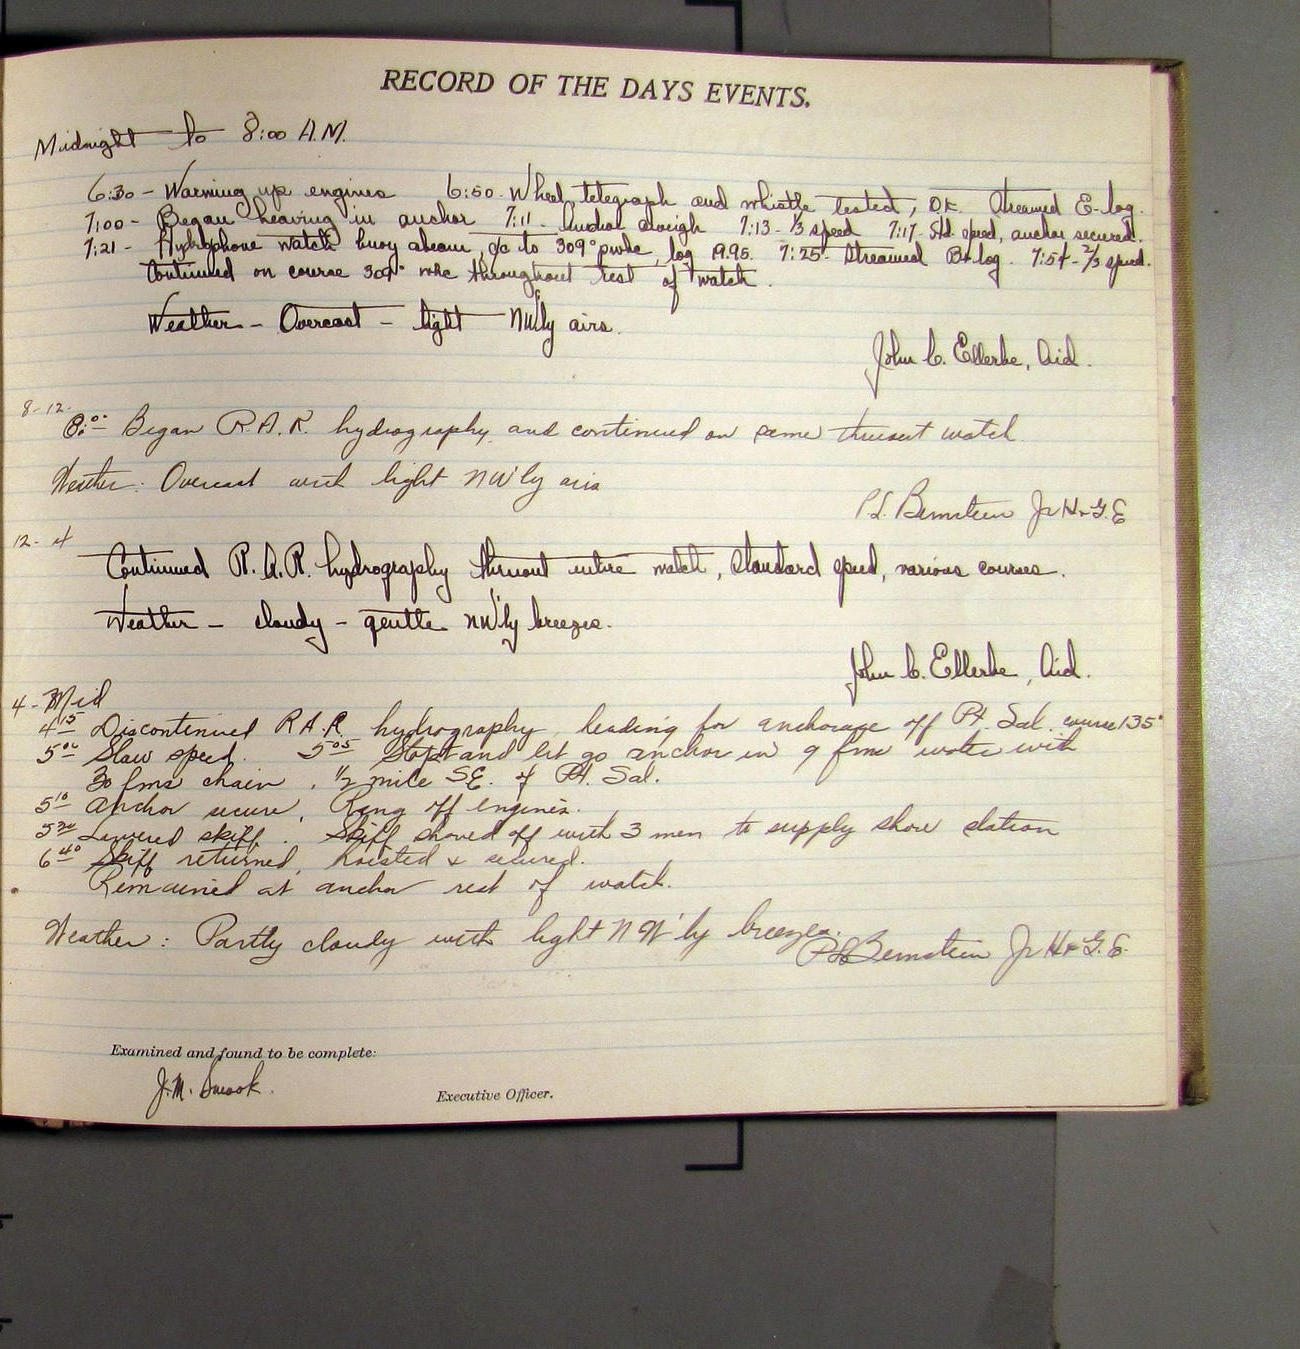 RECORD OF THE DAYS EVENTS.
Midnight to 8:00 A.M.
6:30 - Warming up engines 6:50. Wheel, telegraph and whistle tested, O.K. Streamed E-log.
7:00 - Began heaving in anchor 7:11 - Anchor aweigh 7:13 - 1/3 speed 7:17 - Std. speed, anchor secured.
7:21 - Hydrophone watch buoy abeam, c/c to 309° , log 19.95. 7:25 - Streamed log. 7:54 - 2/3 speed.
Continued on course 309° throughout rest of watch.
Weather - Overcast - light NW'ly airs.
John C. Ellerbe, Aid.
8-12.
8:00 Began R.A.R. hydrography and continued on same thruout watch
Weather: Overcast with light NW'ly airs
P.L. Bernstein Jr H & G.E
12-4
Continued R.A.R. hydrography thruout entire watch, standard speed, various courses.
Weather - cloudy - gentle NW'ly breezes.
John C. Ellerbe, Aid.
4 - Mid
4 15 Discontinued R.A.R. hydrography, heading for anchorage off Pt. Sal. course 135°
5 00 Slow speed. 5 05 Stopt and let go anchor in 9 fms water with
30 fms chain, 1/2 mile SE. of Pt. Sal.
5 10 Anchor secure, Rang off engines.
5 30 Lowered skiff. Skiff shoved off with 3 men to supply shore station
6 40 Skiff returned, hoisted & secured.
Remained at anchor rest of watch.
Weather: Partly cloudy with light NW'ly breezes.
P.L. Bernstein Jr H & G.E.
Examined and found to be complete:
J.M. Smook.
Executive Officer.